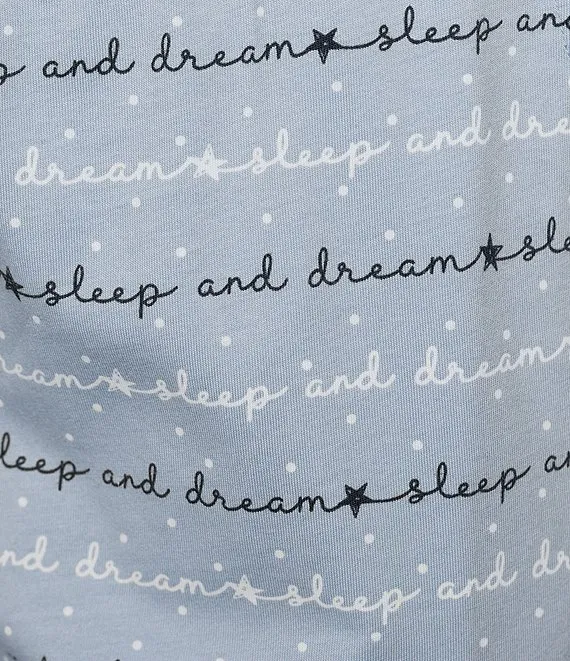 and dream sleep and
dream sleep and dre
sleep and dream sle
ream sleep and dream
leep and dream sleep a
nd dream sleep and dr